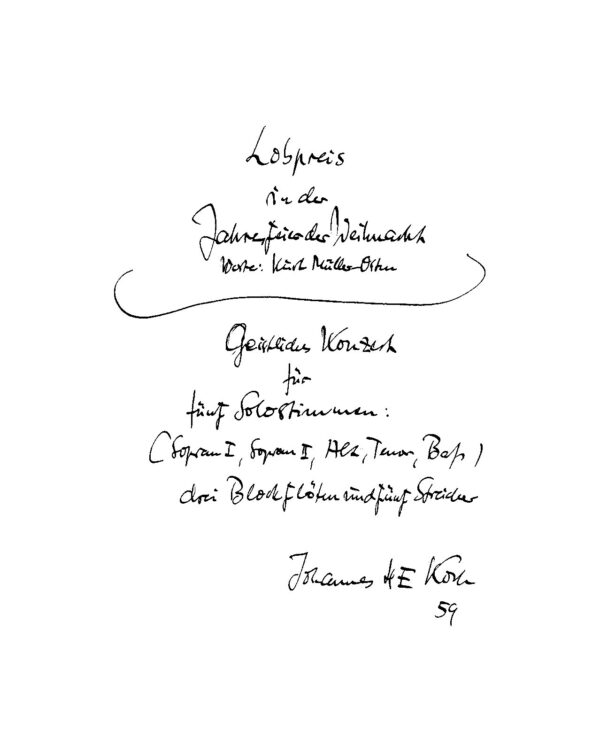 Lobpreis
in der
Jahresfeier der Weihnacht
Worte: Kurt Müller-Osten
Geistliches Konzert
für
fünf Solostimmen:
(Sopran I, Sopran II, Alt, Tenor, Baß)
drei Blockflöten und fünf Streicher
Johannes H E Koch
59